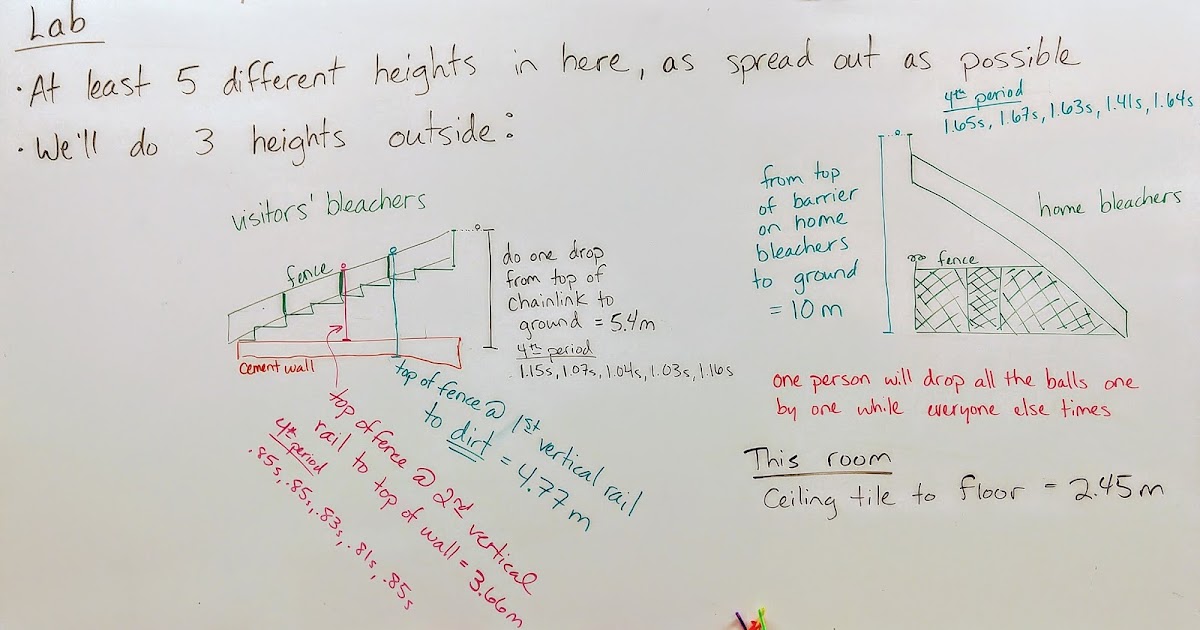 Lab
· At least 5 different heights in here, as spread out as possible
· We'll do 3 heights outside:
4th period
1.65s, 1.67s, 1.63s, 1.41s, 1.64s
visitors' bleachers
fence
cement wall
do one drop
from top of
chainlink to
ground = 5.4m
4th period
1.15s, 1.07s, 1.04s, 1.03s, 1.16s
top of fence @ 1st vertical rail
to dirt = 4.77 m
top of fence @ 2nd vertical
rail to top of wall = 3.66m
4th period
.85s, .85s, .83s, .81s, .85s
from top
of barrier
on home
bleachers
to ground
= 10 m
home bleachers
fence
one person will drop all the balls one
by one while everyone else times
This room
Ceiling tile to floor = 2.45m